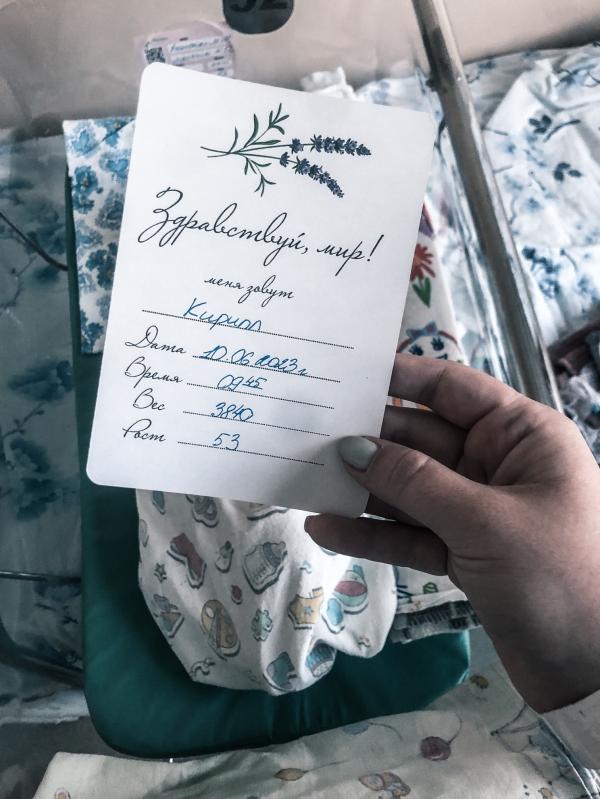 Здравствуй, мир!
меня зовут
Кирилл
Дата 10.06.2023г
Время 09 45
Вес 3840
Рост 53